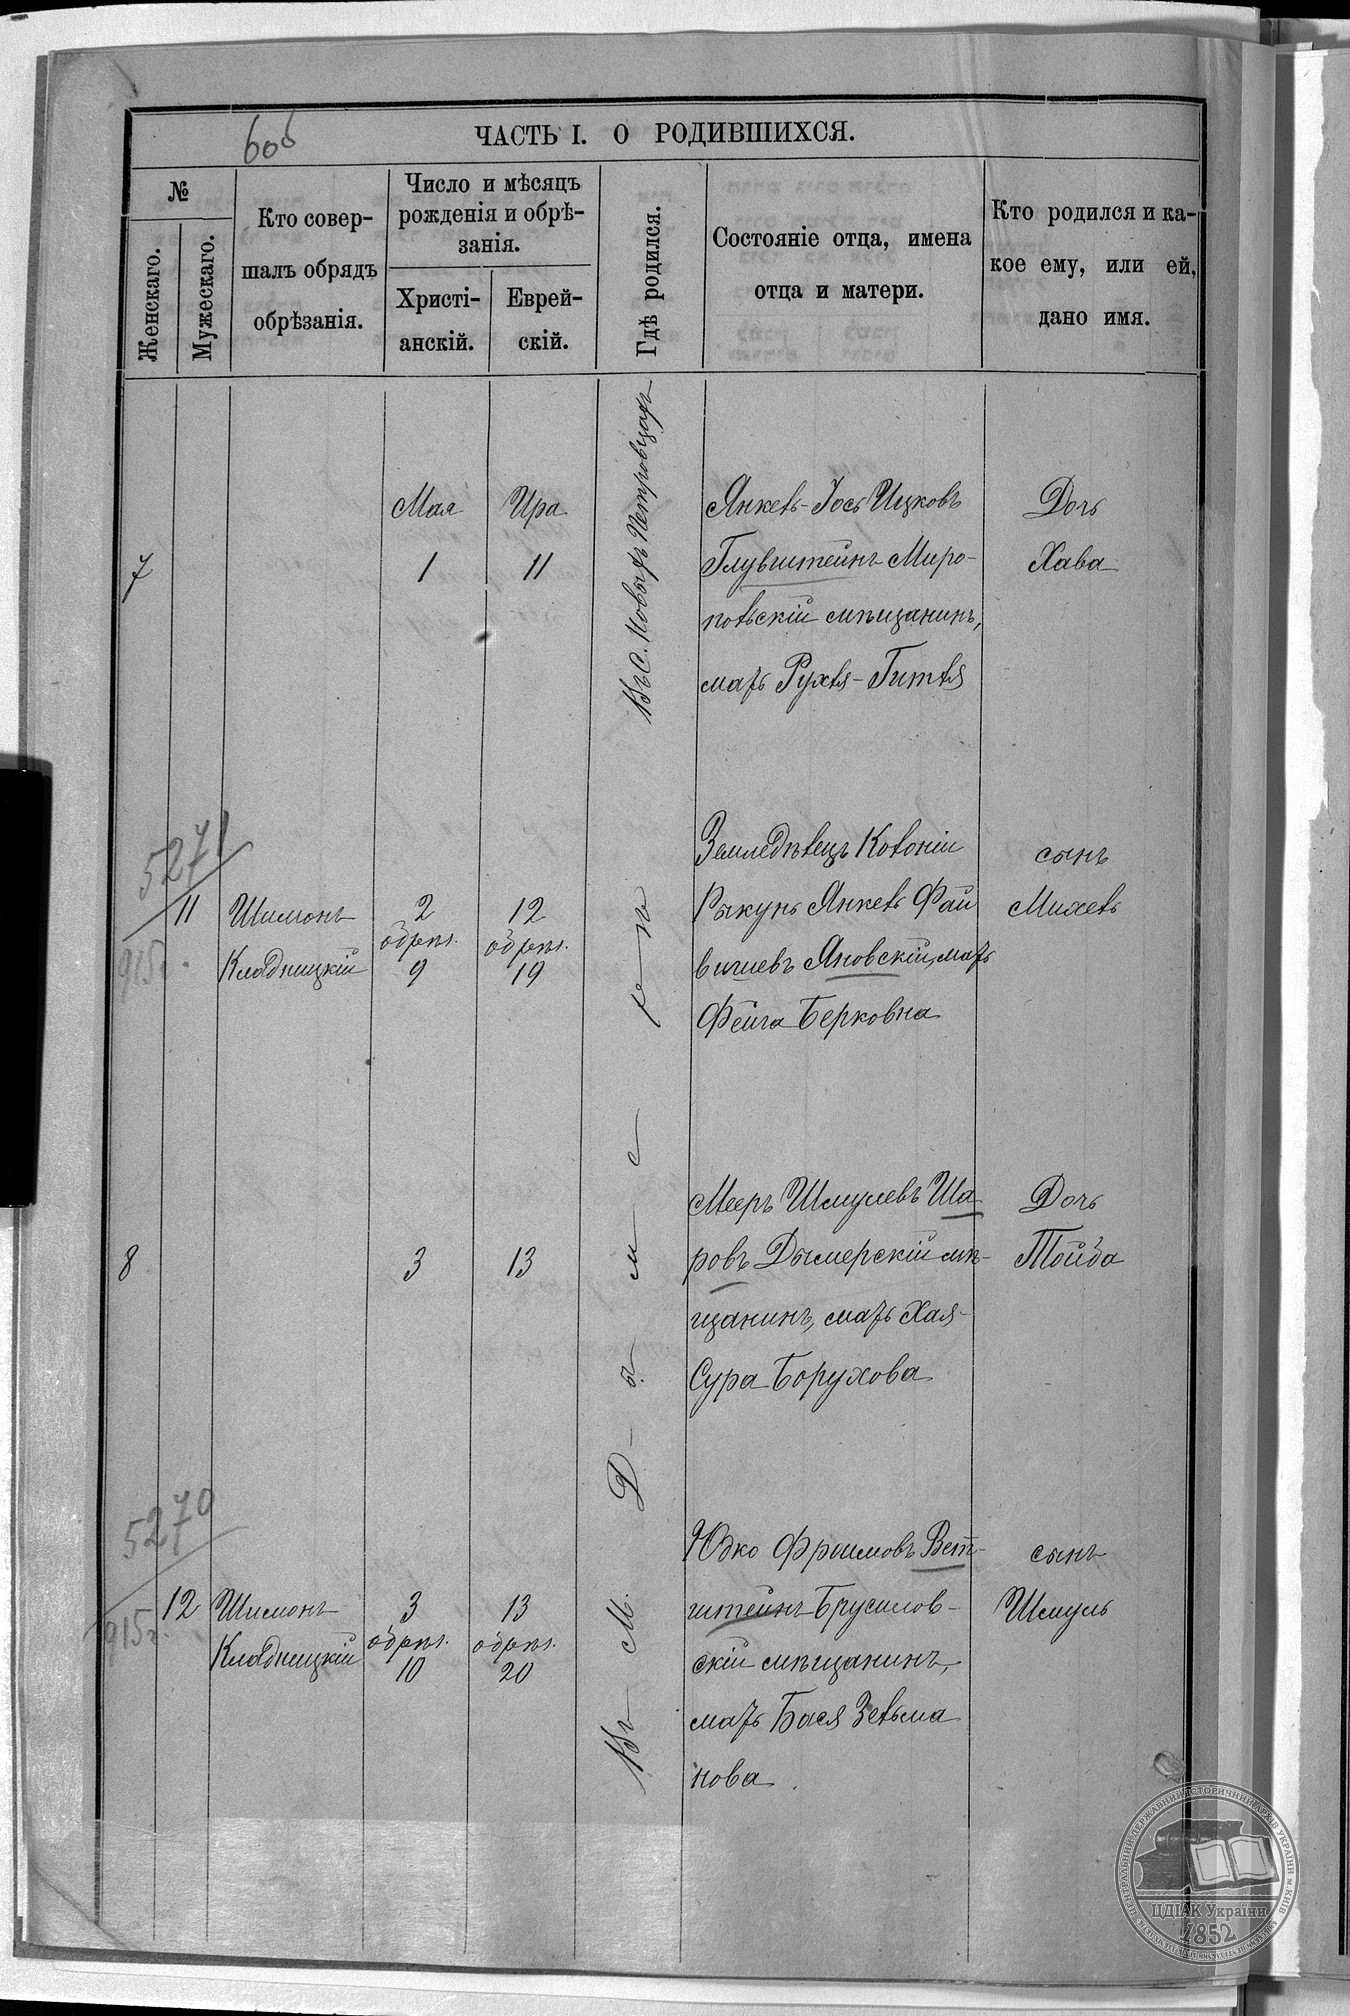 606
ЧАСТЬ I. О РОДИВШИХСЯ.
№
Женскаго.
Мужескаго.
Кто совер-
шалъ обрядъ
обрѣзанія.
Число и мѣсяцъ
рожденія и обрѣ-
занія.
Христі-
анскій.
Еврей-
скій.
Гдѣ родился.
Состояніе отца, имена
отца и матери.
Кто родился и ка-
кое ему, или ей,
дано имя.
7
Мая
1
Ира
11
Въ С. Новыхъ Петровцахъ
Янкель-Іось Ицковъ
Глувштейнъ Миро-
польскій мѣщанинъ,
мать Рухля-Гитля
Дочь
Хава
5271
915г.
11
Шимонъ
Кладницкій
2
обрѣз.
9
12
обрѣз.
19
Земледѣлецъ Колоніи
Рыкунь Янкель Фай
вишевъ Яновскій, мать
Фейга Берковна
сынъ
Михель
8
3
13
Мееръ Шмулевъ Ша
ровъ Дымерскій мѣ-
щанинъ, мать Хая-
Сура Борухова
Дочь
Тойба
5270
915г.
12
Шимонъ
Кладницкій
3
обрѣз.
10
13
обрѣз.
20
Въ М. Дымерѣ
Юдко Фроимовъ Вет-
штейнъ Брусилов-
скій мѣщанинъ,
мать Бася Зельма
нова
сынъ
Шмуль
ЦЕНТРАЛЬНИЙ ДЕРЖАВНИЙ ІСТОРИЧНИЙ АРХІВ УКРАЇНИ м. КИЇВ
ЦДІАК України
1852